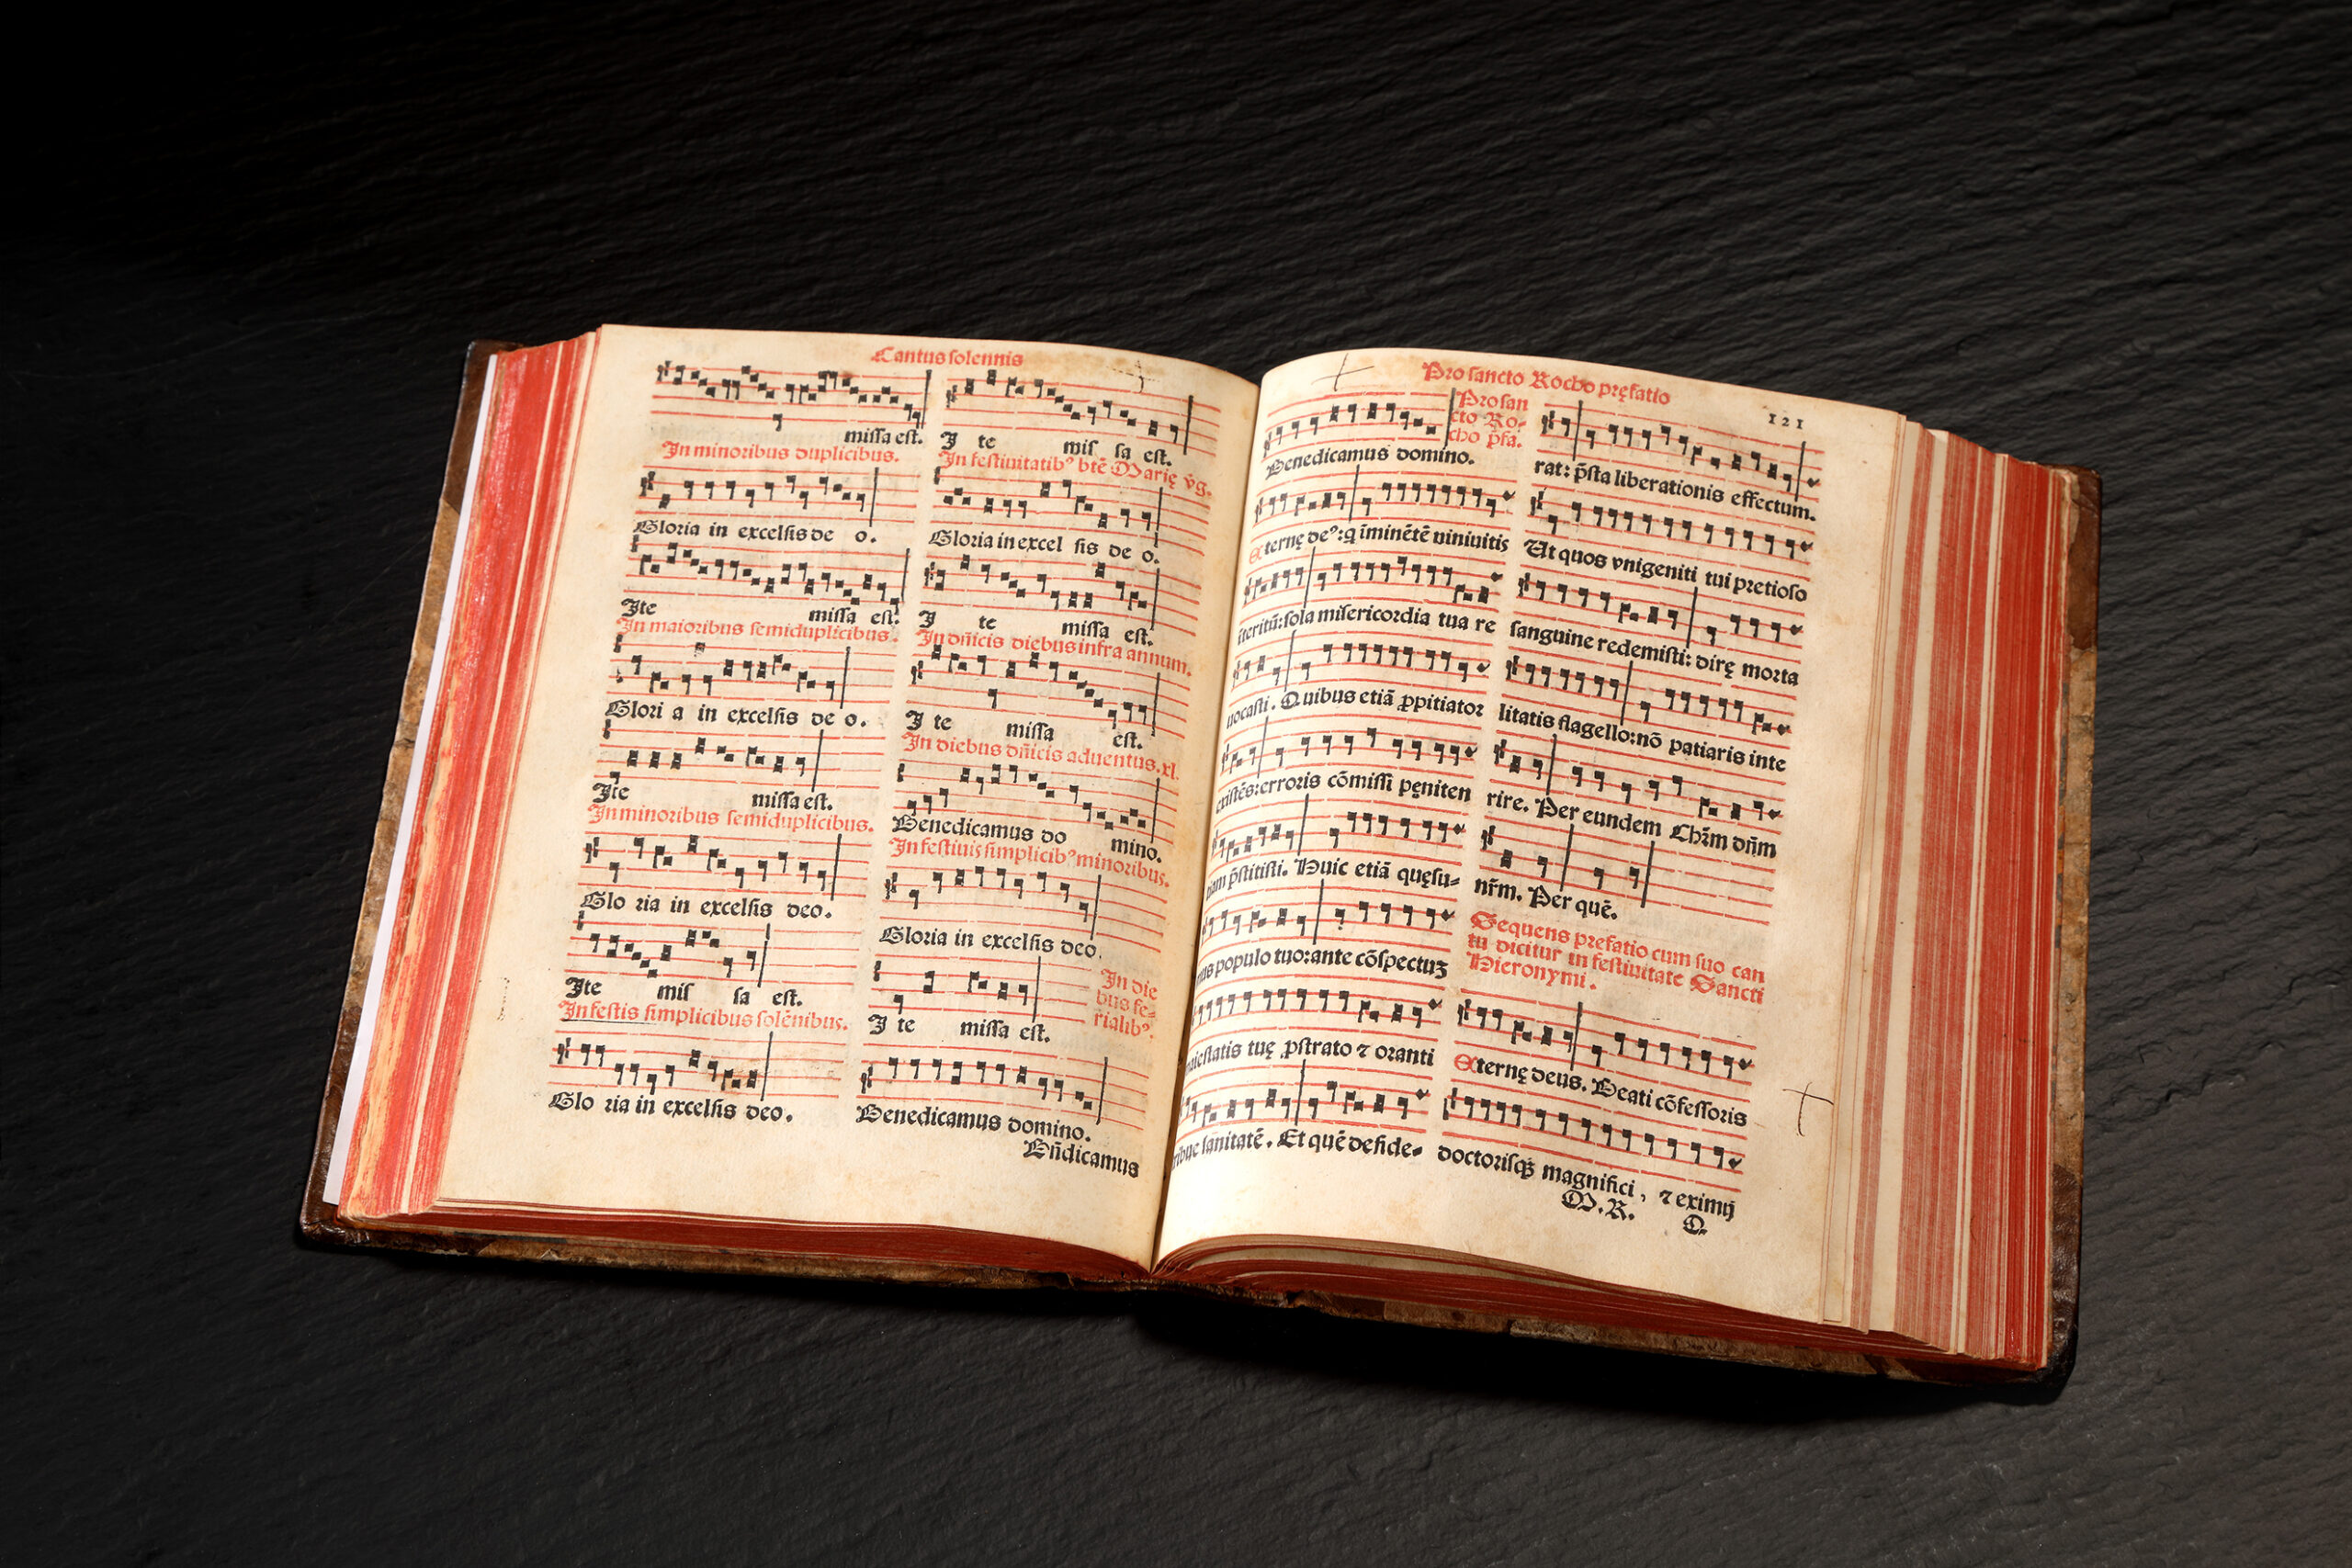 Cantus solennis
missa est.
In minoribus duplicibus.
Gloria in excelsis de o.
Ite missa est.
In maioribus semiduplicibus.
Glori a in excelsis de o.
Ite missa est.
In minoribus semiduplicibus.
Glo ria in excelsis deo.
Ite mis sa est.
In festis simplicibus solēnibus.
Glo ria in excelsis deo.
I te mis sa est.
In festiuitatibꝰ btē Marię v̄g.
Gloria in excel sis de o.
I te missa est.
In dn̄icis diebus infra annum.
I te missa est.
In diebus dn̄icis aduentus. xl.
Benedicamus do mino.
In festiuis simplicibꝰ minoribus.
Gloria in excelsis deo.
I te missa est.
In die
bus fe-
rialibꝰ.
Benedicamus domino.
Bn̄dicamus
Pro sancto Rocho pręfatio
121
Benedicamus domino.
Pro san
cto Ro-
cho p̄fa.
Æternę deꝰ: q īminētē niniuitis
īteritū: sola misericordia tua re
uocasti. Quibus etiā ꝓpitiator
existēs: erroris cōmissi pęniten
tiam p̄stitisti. Huic etiā quęsu-
mus populo tuo: ante cōspectuꝫ
maiestatis tuę ꝓstrato ⁊ oranti
tribue sanitatē. Et quē deside-
rat: p̄sta liberationis effectum.
Ut quos vnigeniti tui pretioso
sanguine redemisti: dirę morta
litatis flagello: nō patiaris inte
rire. Per eundem Chr̄m dn̄m
nr̄m. Per quē.
Sequens prefatio cum suo can
tu dicitur in festiuitate Sancti
Hieronymi.
Æternę deus. Beati cōfessoris
doctorisqꝫ magnifici, ⁊ eximij
M.R. Q